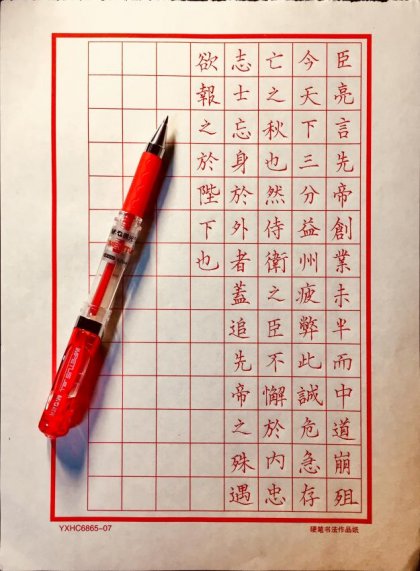 臣亮言先帝創業未半而中道崩殂
今天下三分益州疲弊此誠危急存
亡之秋也然侍衛之臣不懈於内忠
志士忘身於外者蓋追先帝之殊遇
欲報之於陛下也
YXHC6865-07
硬笔书法作品纸